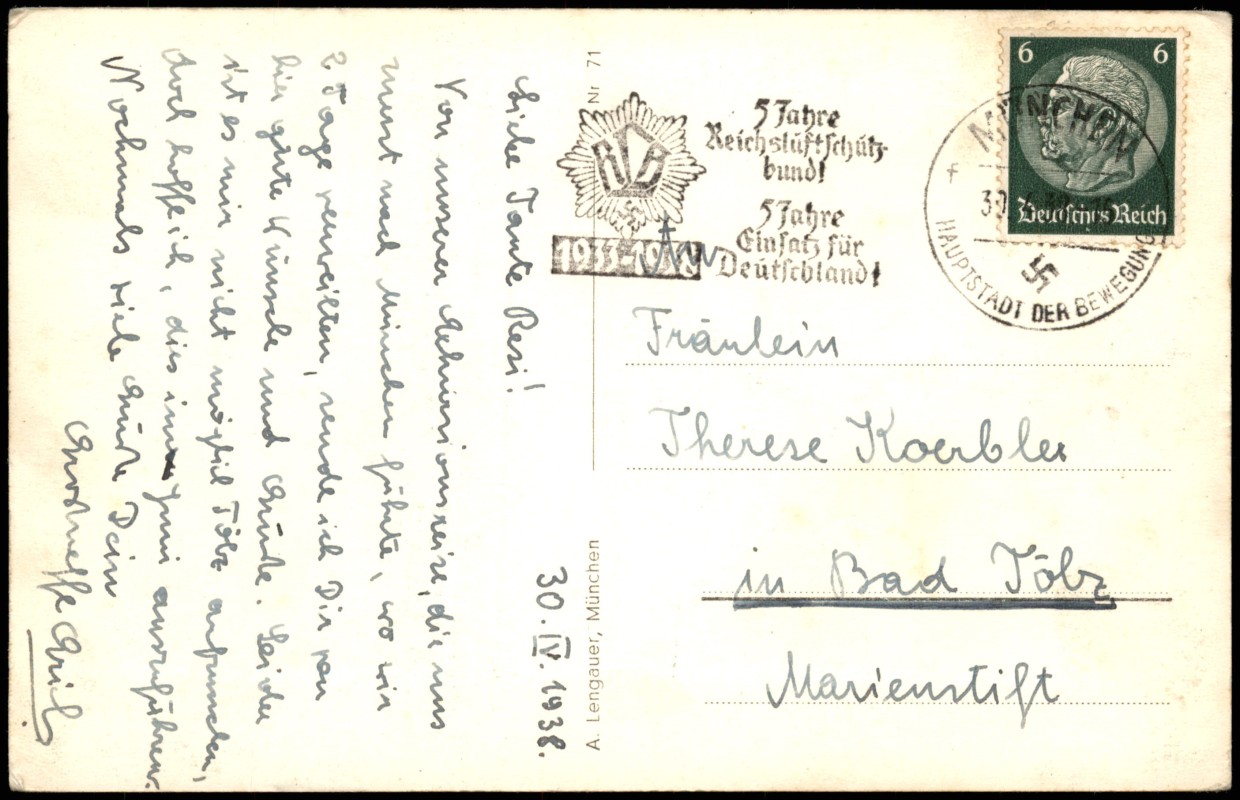 30. IV. 1938.
Liebe Tante Resi!
Von unserer Exkursionsreise, die uns
zunächst nach München führte, wo wir
2 Tage verweilten, sende ich Dir von
hier gute Wünsche und Grüße. Leider
ist es mir nicht möglich Tölz aufzusuchen,
doch hoffe ich, dies im Juni auszuführen.
Nochmals viele Grüße Dein
Großneffe Erich
A. Lengauer, München
Nr 71
RLB
1933-1938
5 Jahre
Reichsluftschutz-
bund!
5 Jahre
Einsatz für
Deutschland!
MÜNCHEN
30. 4.
HAUPTSTADT DER BEWEGUNG
6 6
Deutsches Reich
An
Fräulein
Therese Koerbler
in Bad Tölz
Marienstift